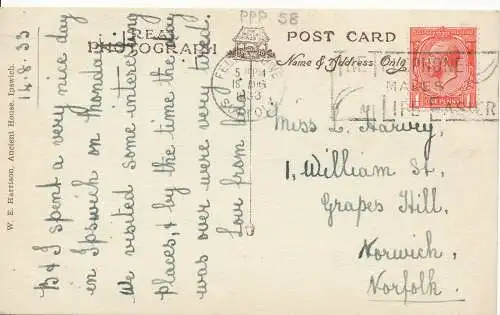 PPP 58
REAL
PHOTOGRAPH
POST CARD
Name & Address Only
5
15 AUG
33
THE TELEPHONE
MAKES
LIFE EASIER
W. E. Harrison, Ancient House, Ipswich.
14.8.33
B & I spent a very nice day
in Ipswich on Monday.
We visited some interesting
places, & by the time the day
was over we were very tired.
Love from
Miss L. Harvey,
1, William St,
Grapes Hill,
Norwich,
Norfolk.